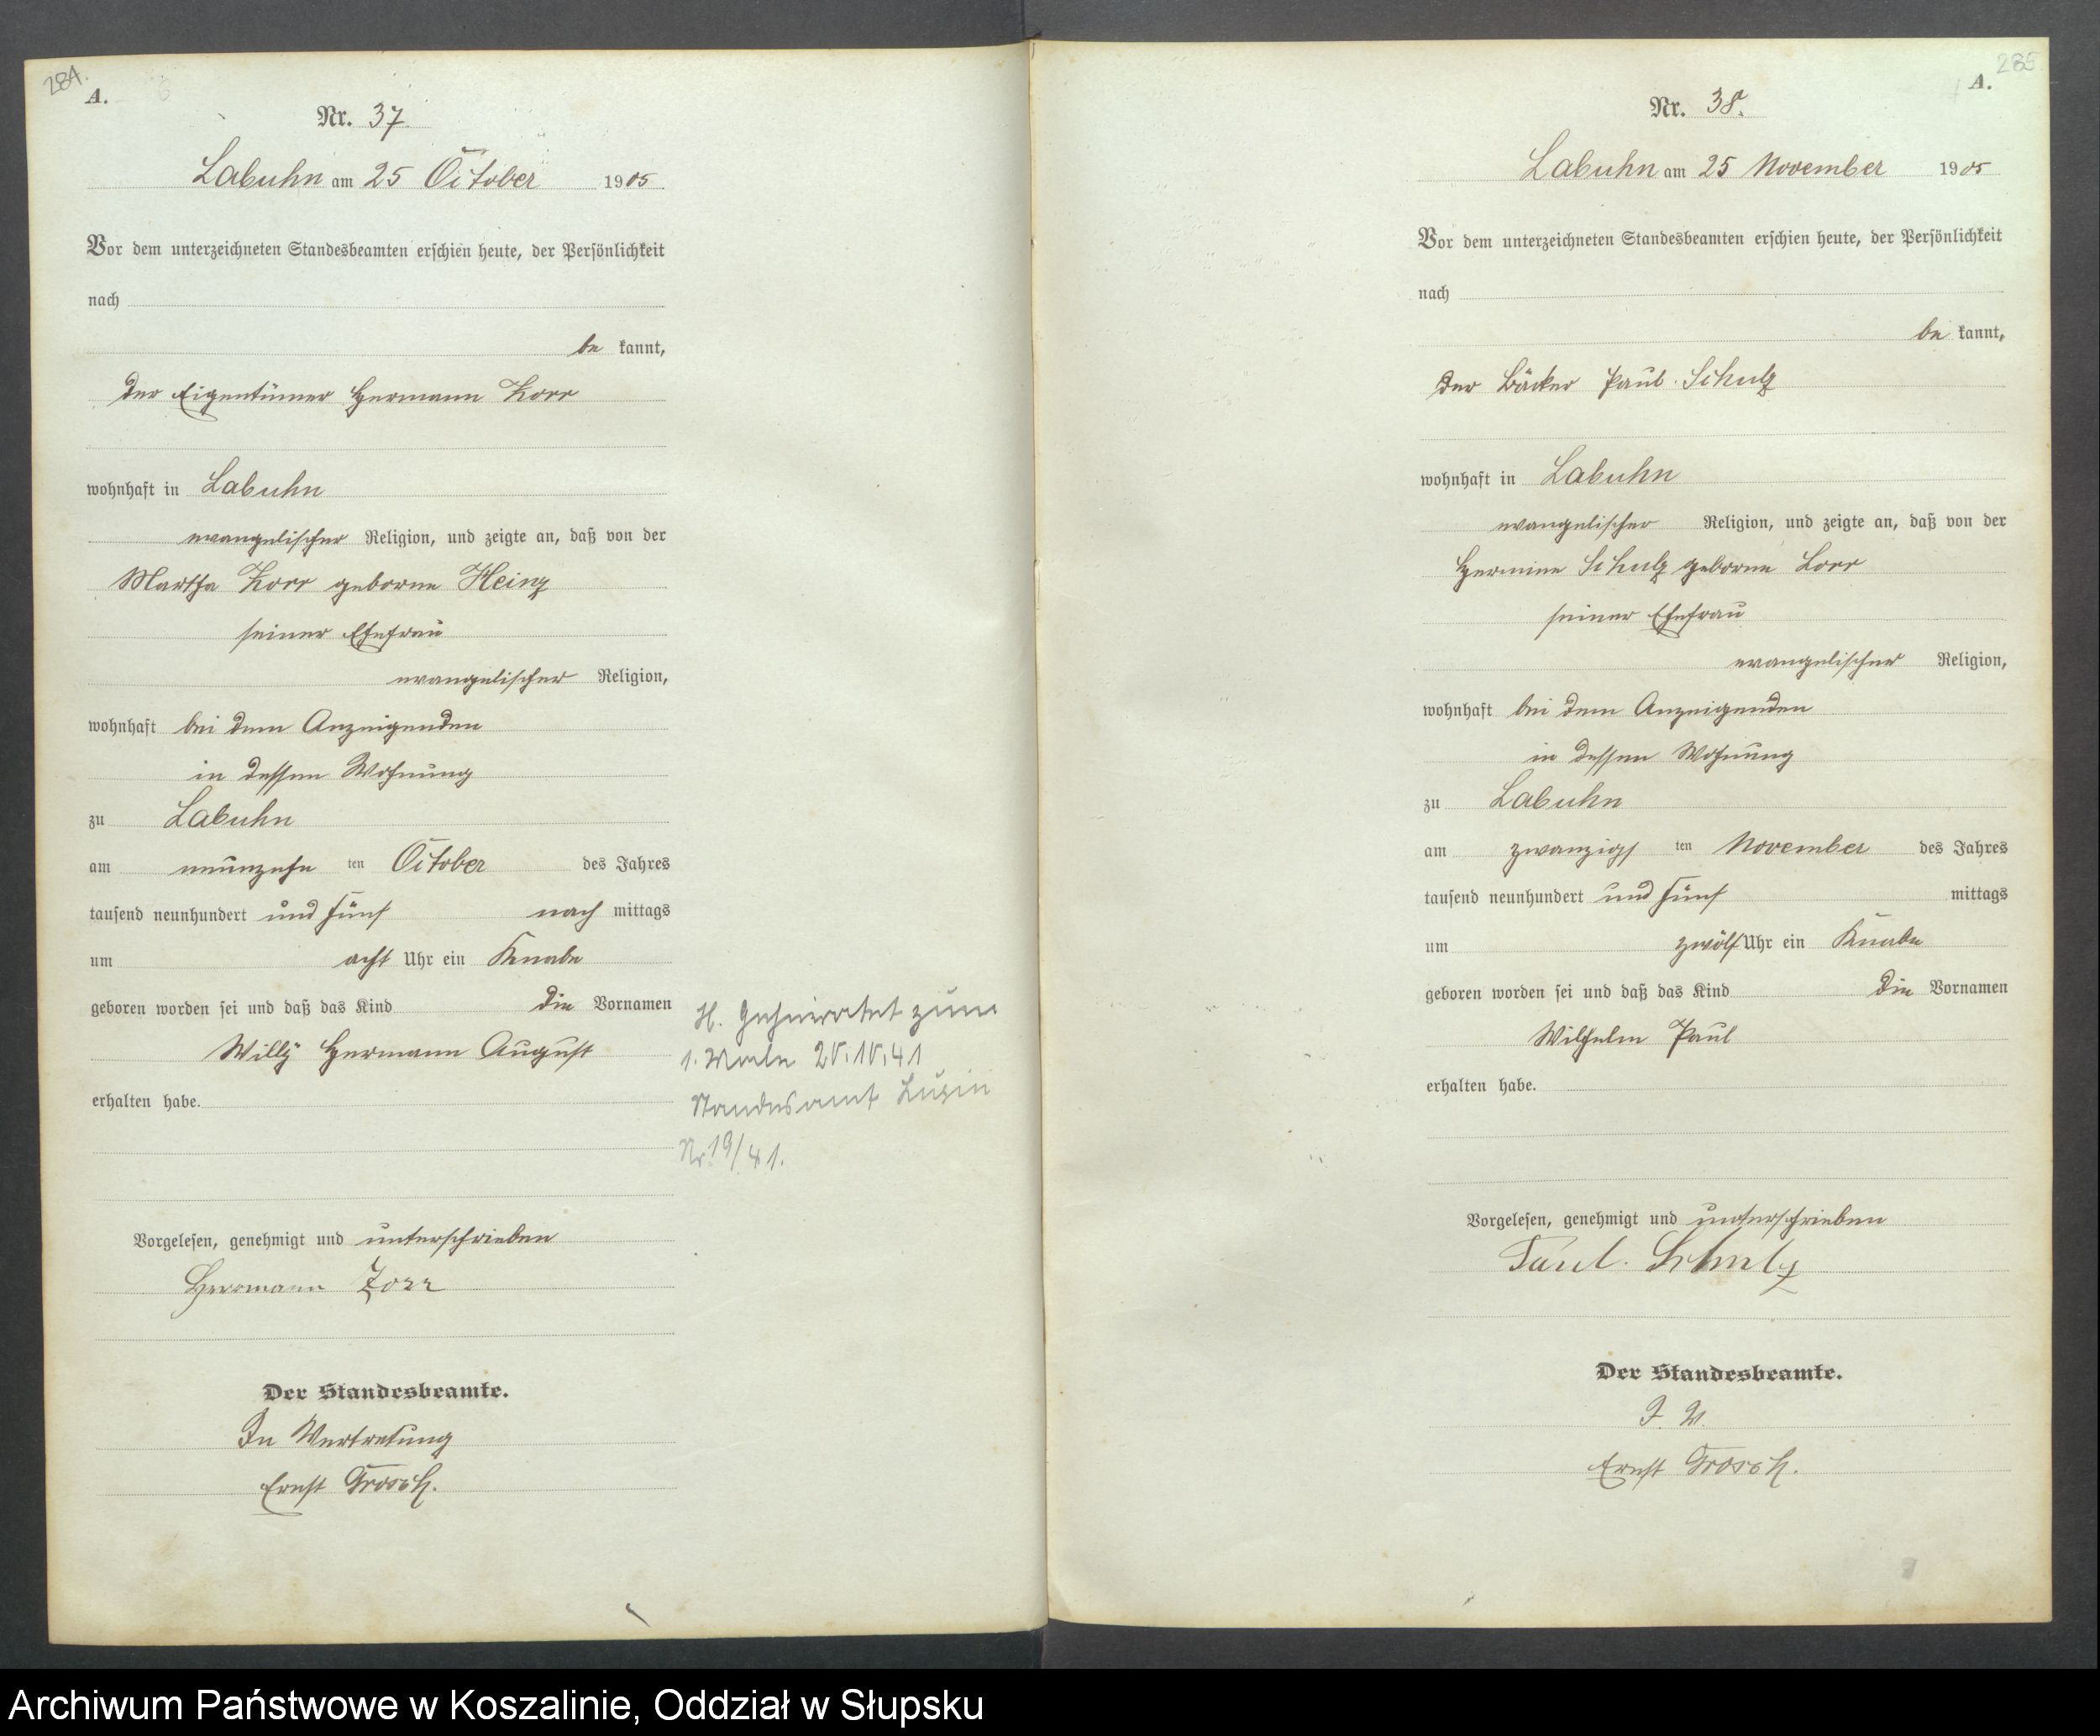 284.
A.
Nr. 37.
Labuhn am 25 October 1905
Vor dem unterzeichneten Standesbeamten erschien heute, der Persönlichkeit
nach
be kannt,
der Eigentümer Hermann Zorr
wohnhaft in Labuhn
evangelischer Religion, und zeigte an, daß von der
Martha Zorr geborne Heinz
seiner Ehefrau
evangelischer Religion,
wohnhaft bei dem Anzeigenden
in dessen Wohnung
zu Labuhn
am neunzehn ten October des Jahres
tausend neunhundert und fünf nach mittags
um acht Uhr ein Knabe
geboren worden sei und daß das Kind die Vornamen
Willy Hermann August
erhalten habe.
Vorgelesen, genehmigt und unterschrieben
Herrmann Zorr
Der Standesbeamte.
In Vertretung
Ernst
H. Geheiratet zum
1. Male 20.10.41
Standesamt Luzin
Nr 19/41.
285
A.
Nr. 38.
Labuhn am 25 November 1905
Vor dem unterzeichneten Standesbeamten erschien heute, der Persönlichkeit
nach
be kannt,
der Bäcker Paul Schulz
wohnhaft in Labuhn
evangelischer Religion, und zeigte an, daß von der
Hermine Schulz geborne
seiner Ehefrau
evangelischer Religion,
wohnhaft bei dem Anzeigenden
in dessen Wohnung
zu Labuhn
am zwanzigs ten November des Jahres
tausend neunhundert und fünf mittags
um zwölf Uhr ein Knabe
geboren worden sei und daß das Kind die Vornamen
Wilhelm Paul
erhalten habe.
Vorgelesen, genehmigt und unterschrieben
Paul. Schulz
Der Standesbeamte.
I. V.
Ernst
Archiwum Państwowe w Koszalinie, Oddział w Słupsku